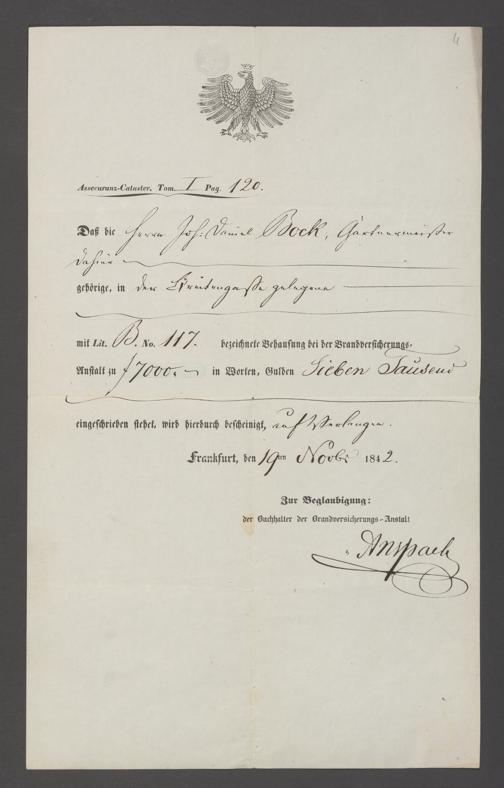 4
Assecuranz-Cataster. Tom. I Pag. 120.
Daß die Herrn Joh: Daniel Bock, Gärtnermeister
dahier
gehörige, in der Breitengasse gelegene
mit Lit. B. No. 117. bezeichnete Behausung bei der Brandversicherungs-
Anstalt zu f 7000.- in Worten, Gulden Sieben Tausend
eingeschrieben stehet, wird hierdurch bescheinigt, auf Verlangen.
Frankfurt, den 19ten Novbr 1842.
Zur Beglaubigung:
der Buchhalter der Brandversicherungs-Anstalt
Anspach